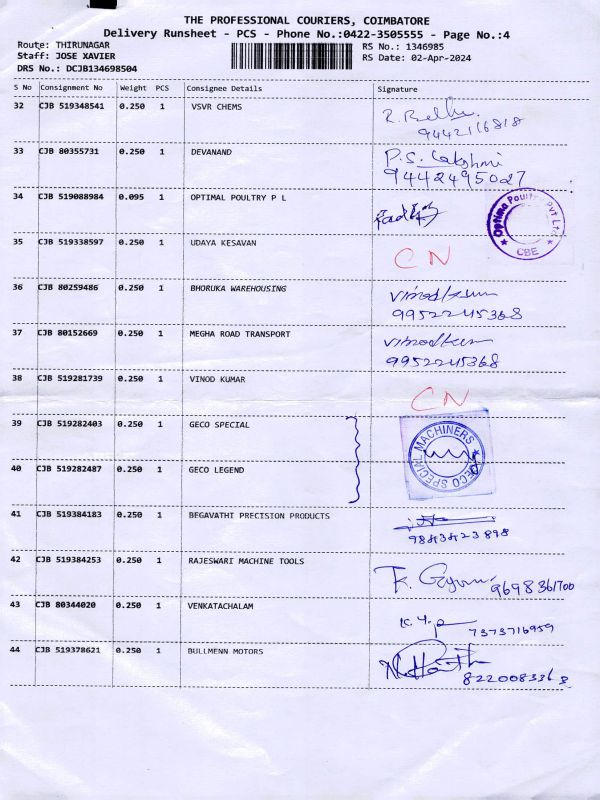 THE PROFESSIONAL COURIERS, COIMBATORE
Delivery Runsheet - PCS - Phone No.:0422-3505555 - Page No.:4
Route: THIRUNAGAR RS No.: 1346985
Staff: JOSE XAVIER RS Date: 02-Apr-2024
DRS No.: DCJB134698504
S No Consignment No Weight PCS Consignee Details Signature
32 CJB 519348541 0.250 1 VSVR CHEMS
9442116818
33 CJB 80355731 0.250 1 DEVANAND P.S. Lakshmi
9442495027
34 CJB 519088984 0.095 1 OPTIMAL POULTRY P L
Optima Poultry Pvt Ltd.
CBE
35 CJB 519338597 0.250 1 UDAYA KESAVAN CN
36 CJB 80259486 0.250 1 BHORUKA WAREHOUSING
9952245368
37 CJB 80152669 0.250 1 MEGHA ROAD TRANSPORT
9952245368
38 CJB 519281739 0.250 1 VINOD KUMAR CN
39 CJB 519282403 0.250 1 GECO SPECIAL
GECO SPECIAL MACHINERS
40 CJB 519282487 0.250 1 GECO LEGEND
41 CJB 519384183 0.250 1 BEGAVATHI PRECISION PRODUCTS
9843423898
42 CJB 519384253 0.250 1 RAJESWARI MACHINE TOOLS
9698361700
43 CJB 80344020 0.250 1 VENKATACHALAM
7373716959
44 CJB 519378621 0.250 1 BULLMENN MOTORS
8220083368